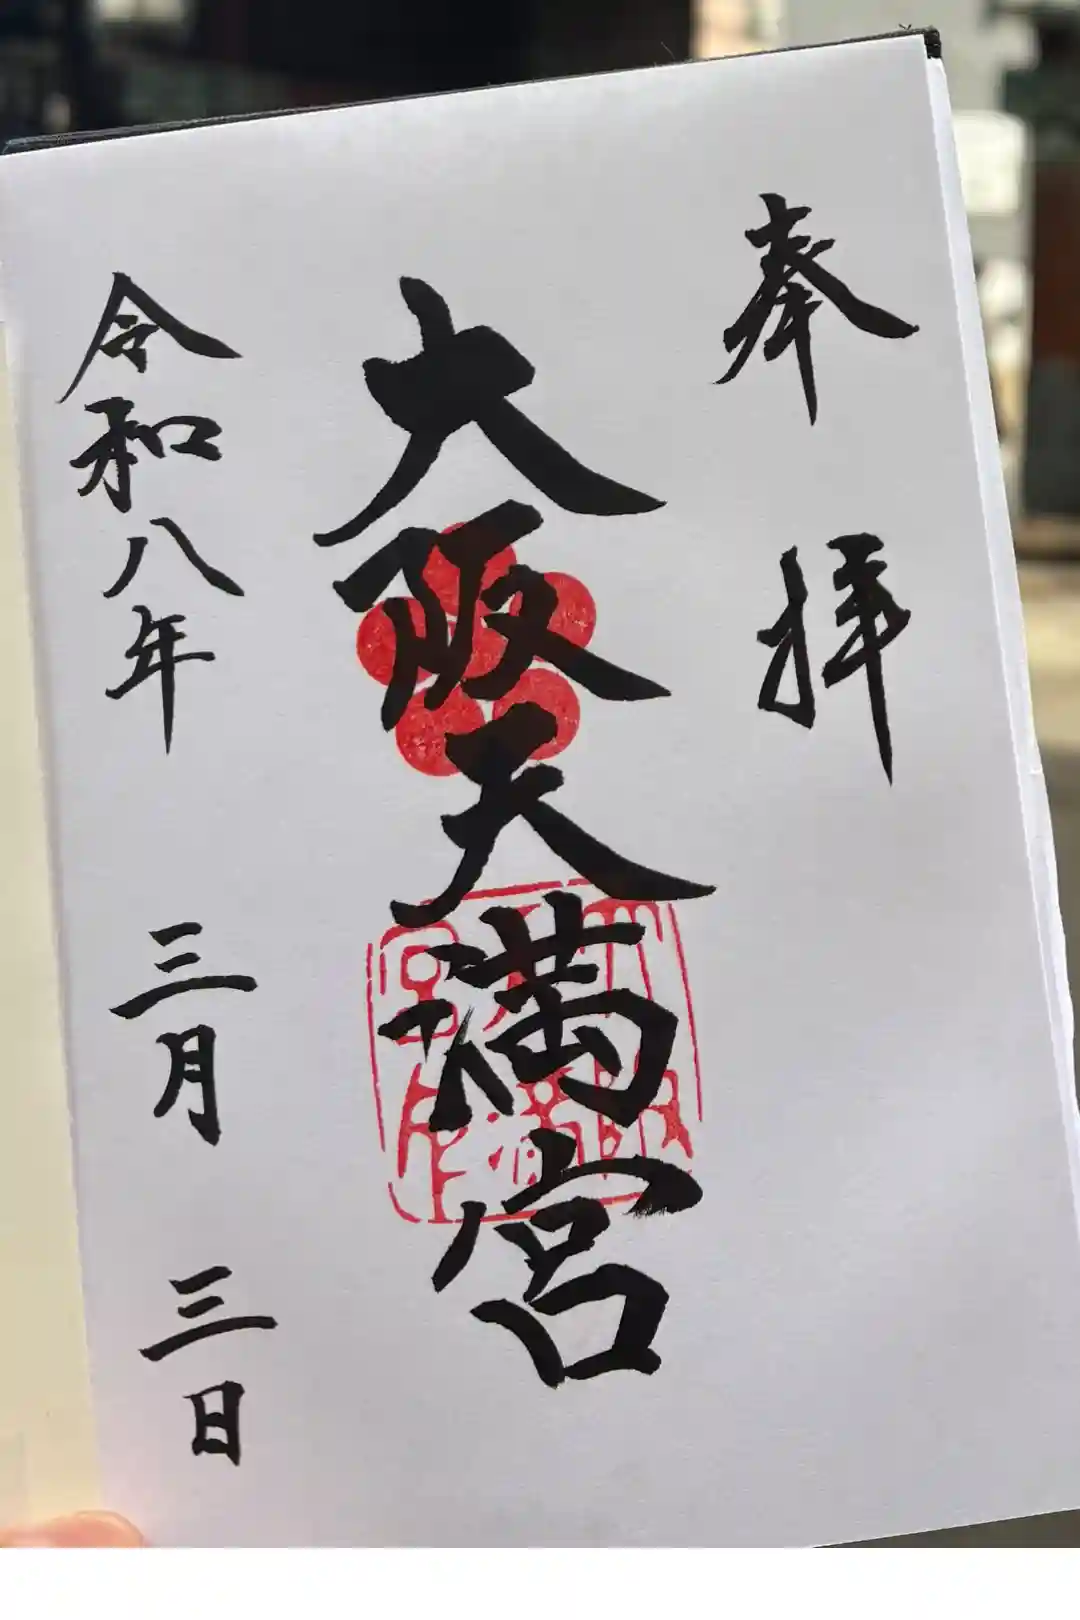 奉拝
大阪天満宮
令和八年三月三日